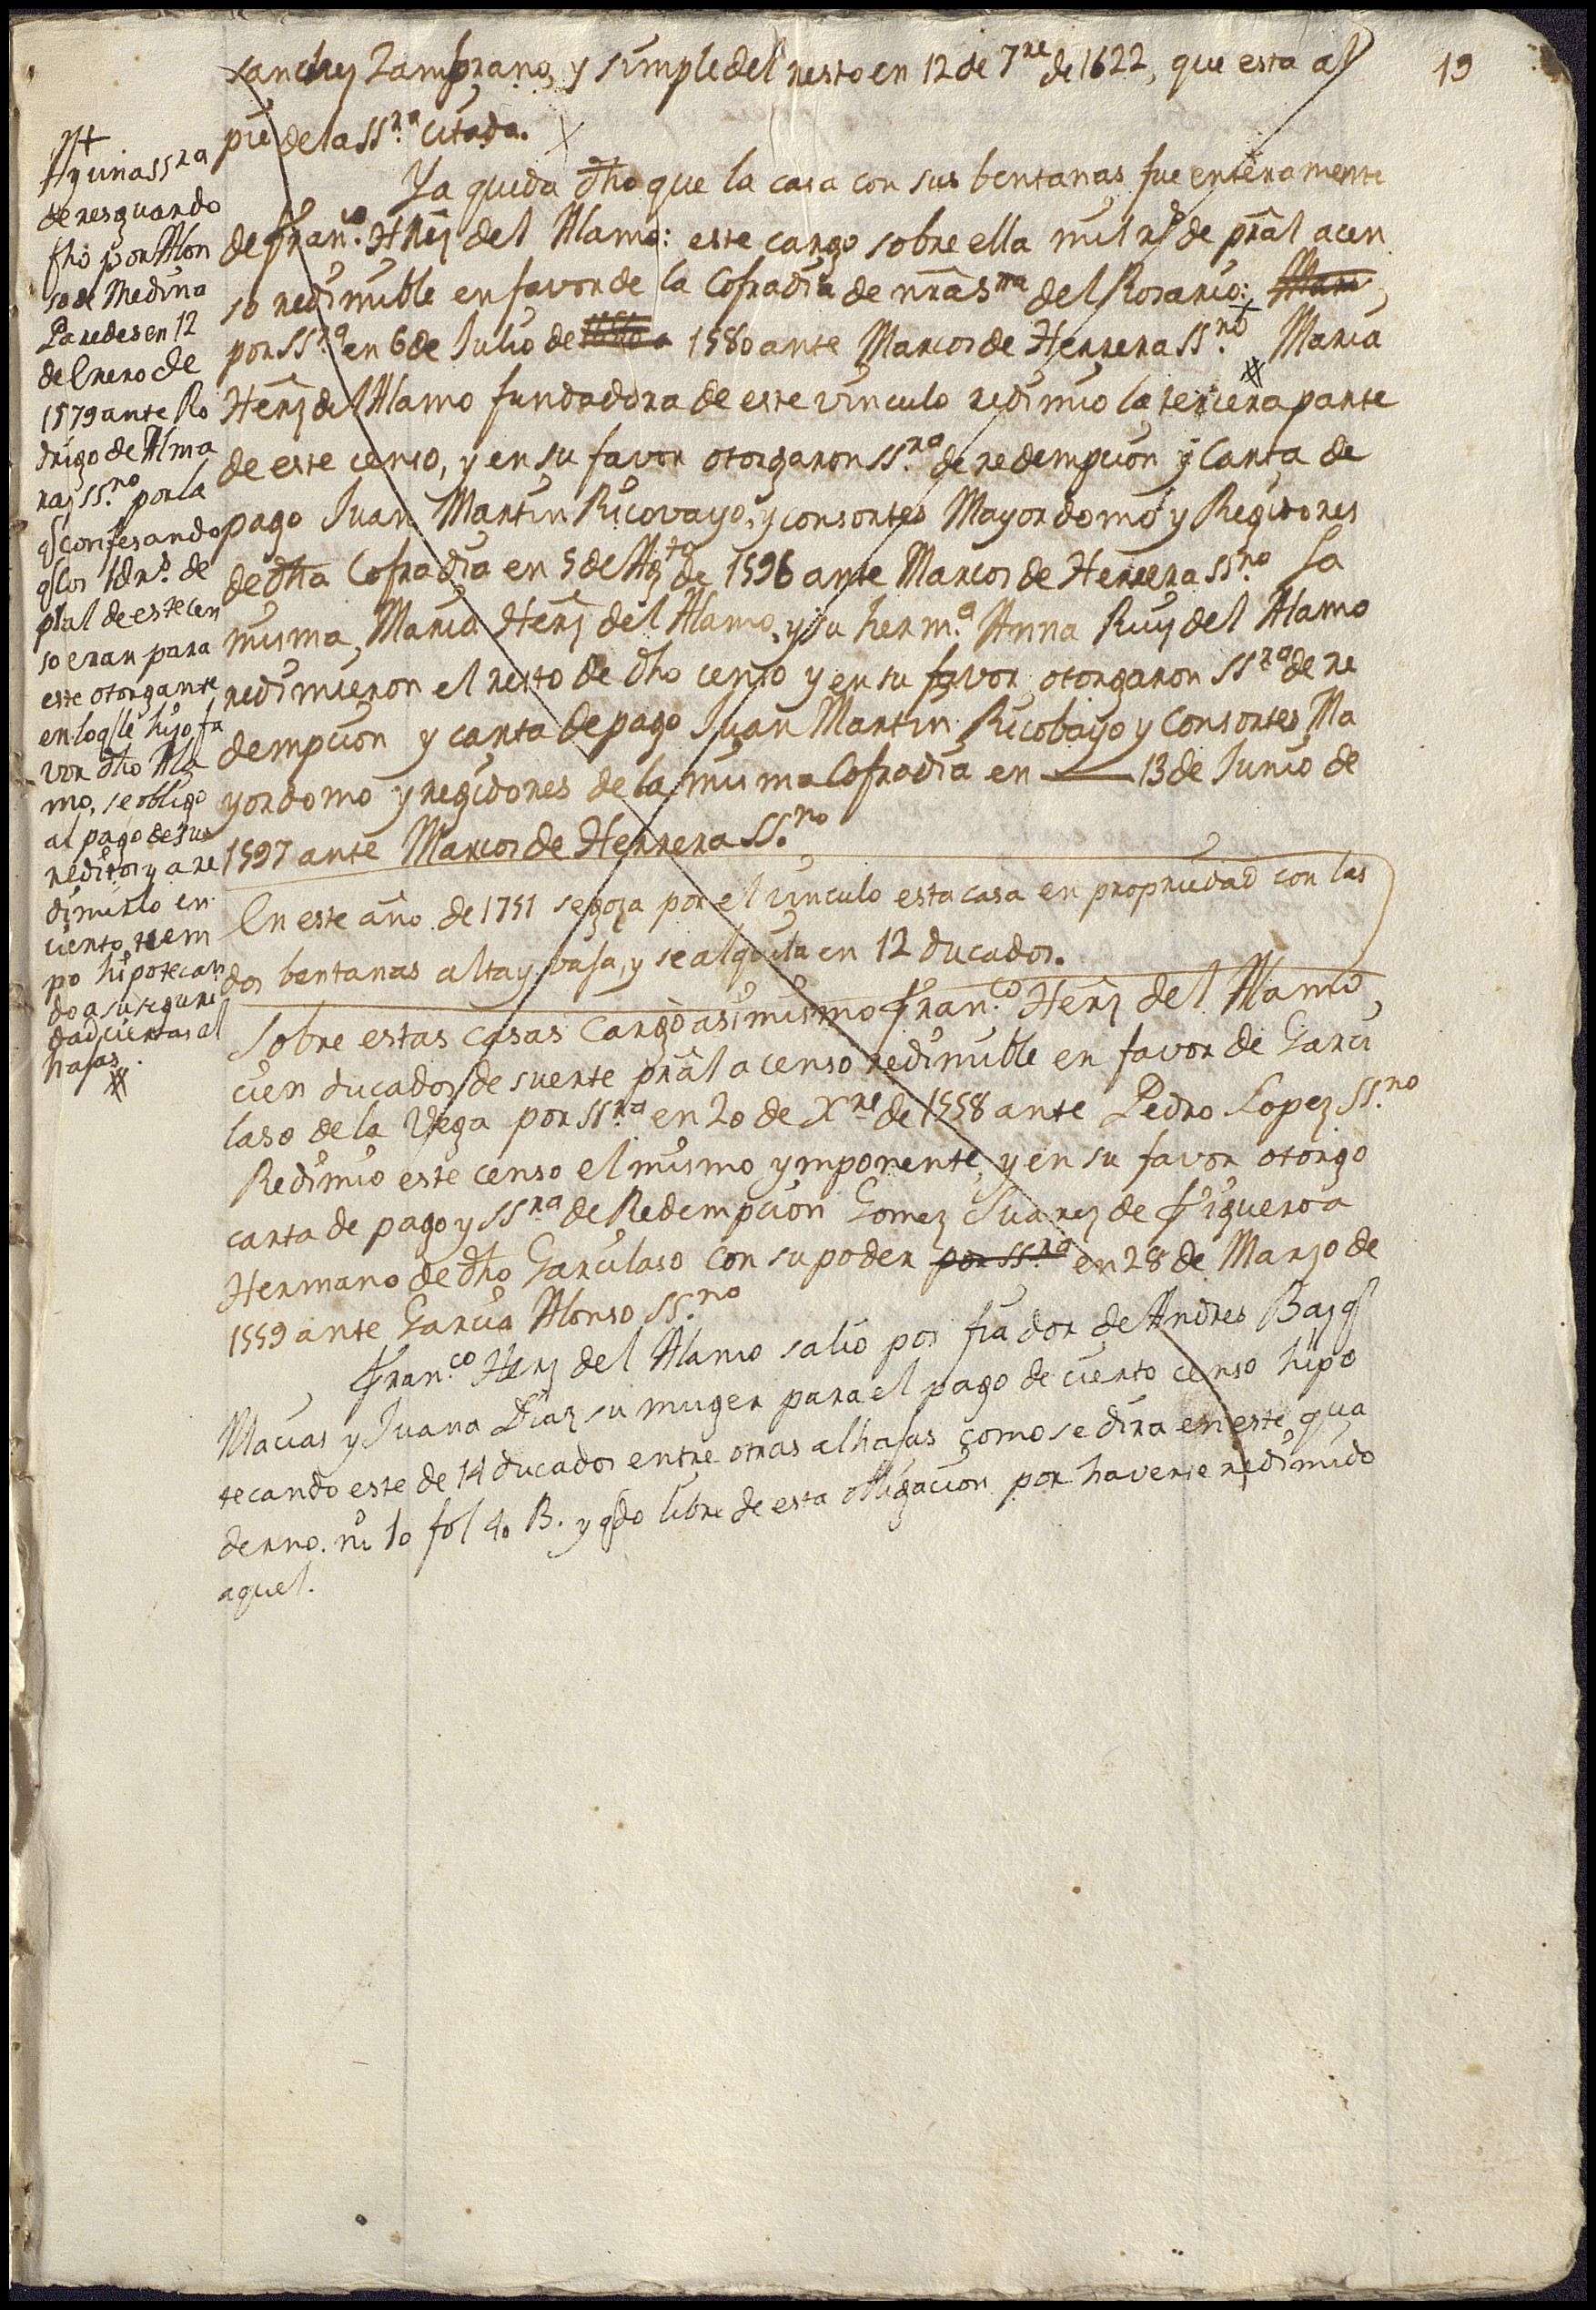 19
sanchez Zambrano, y simple del resto en 12 de 7re de 1622, que esta al
pie de la SSra citada.
Ya queda dho que la casa con sus bentanas fue enteramente
de Franco Hrez del Alamo: este cargo sobre ella mil rs de pral a cen
so redimible en favor de la Cofradia de nra Sra del Rosario:
por SSra en 6 de Julio de 1580 ante Marcos de Herrera SSno + Maria
Herz del Alamo fundadora de este vinculo redimio la tercera parte
de este censo, y en su favor otorgaron SSra de redempcion y Carta de
pago Juan Martin Ricovayo, y consortes Mayordomo y Regidores
de dha Cofradia en 5 de Agto de 1596 ante Marcos de Herrera SSno La
misma Maria Herz del Alamo, y su herma Anna Ruiz del Alamo
redimieron el resto de dho censo y en su favor otorgaron SSra de re
dempcion y carta de pago Juan Martin Ricobayo y Consortes Ma
yordomo y regidores de la misma Cofradia en — 13 de Junio de
1597 ante Marcos de Herrera SSno
En este año de 1751 se goza por el vinculo esta casa en propriedad con las
dos bentanas alta y baja, y se alquila en 12 ducados.
Sobre estas casas Cargò asimismo Franco Herz del Alamo,
cien ducados de suerte pral a censo redimible en favor de Garci
laso de la Vega por SSra en 20 de Xre de 1558 ante Pedro Lopez SSno
Redimio este censo el mismo ymponente, y en su favor otorgo
carta de pago y SSra de Redempcion Gomez Suarez de Figueroa
Hermano de dho Garcilaso con su poder por SSra en 28 de Marzo de
1559 ante Garcia Alonso SSno
Franco Herz del Alamo salio por fiador de Andres Baz
Macias y Juana Diaz su muger para el pago de cierto censo hipo
tecando este de 14 ducados entre otras alhajas como se dira en este qua
derno. nu 10 fol 40 B. y qdo libre de esta obligacion por haverse redimido
aquel.
Ay una SSra
de resguardo
fho por Alon
so de Medina
Paredes en 12
de Enero de
1579 ante Ro
drigo de Alma
raz SSno por la
q confesando
q los 1d rs de
pral de este cen
so eran para
este otorgante
en lo q le hizo fa
vor dho Ala
mo, se obligo
al pago de sus
reditos y a re
dimirlo en
cierto tiem
po hipotecan
do a su seguri
dad ciertas al
hajas